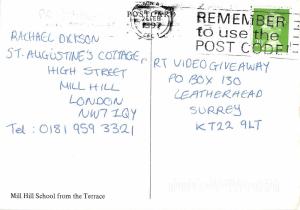 POSTCARD
1997
REMEMBER
to use the
POST CODE!
RACHAEL
ST. AUGUSTINE'S COTTAGE,
HIGH STREET
MILL HILL
LONDON
NW7 1QY
Tel: 0181 959 3321
RT VIDEO GIVEAWAY
PO BOX 130
LEATHERHEAD
SURREY
KT22 9LT
Mill Hill School from the Terrace